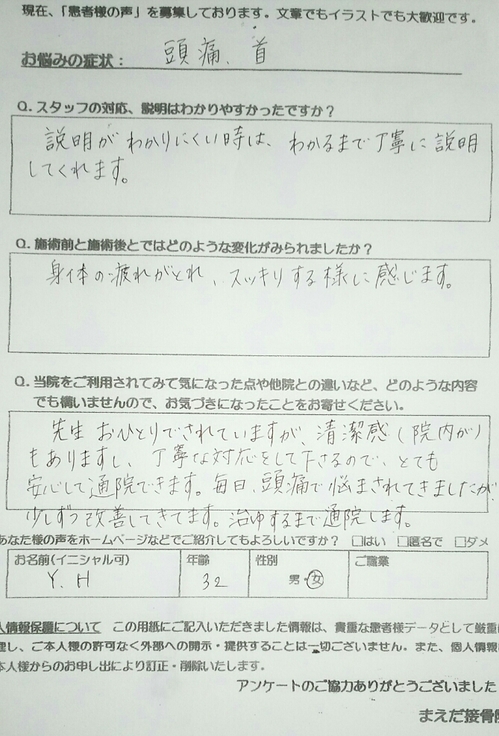 現在、「患者様の声」を募集しております。文章でもイラストでも大歓迎です。
お悩みの症状： 頭痛、首
Q. スタッフの対応、説明はわかりやすかったですか？
説明がわかりにくい時は、わかるまで丁寧に説明
してくれます。
Q. 施術前と施術後とではどのような変化がみられましたか？
身体の疲れがとれ、スッキリする様に感じます。
Q. 当院をご利用されてみて気になった点や他院との違いなど、どのような内容
でも構いませんので、お気づきになったことをお寄せください。
先生おひとりでされていますが、清潔感（院内が）
もありますし、丁寧な対応をして下さるので、とても
安心して通院できます。毎日、頭痛で悩まされてきましたが
少しずつ改善してきてます。治ゆするまで通院します。
あなた様の声をホームページなどでご紹介してもよろしいですか？ □はい □匿名で □ダメ
お名前(イニシャル可) 年齢 性別 ご職業
Y. H 32 男・女
人情報保護について この用紙にご記入いただきました情報は、貴重な患者様データとして厳重に
理し、ご本人様の許可なく外部への開示・提供することは一切ございません。また、個人情報は
本人様からのお申し出により訂正・削除いたします。
アンケートのご協力ありがとうございました
まえだ接骨院